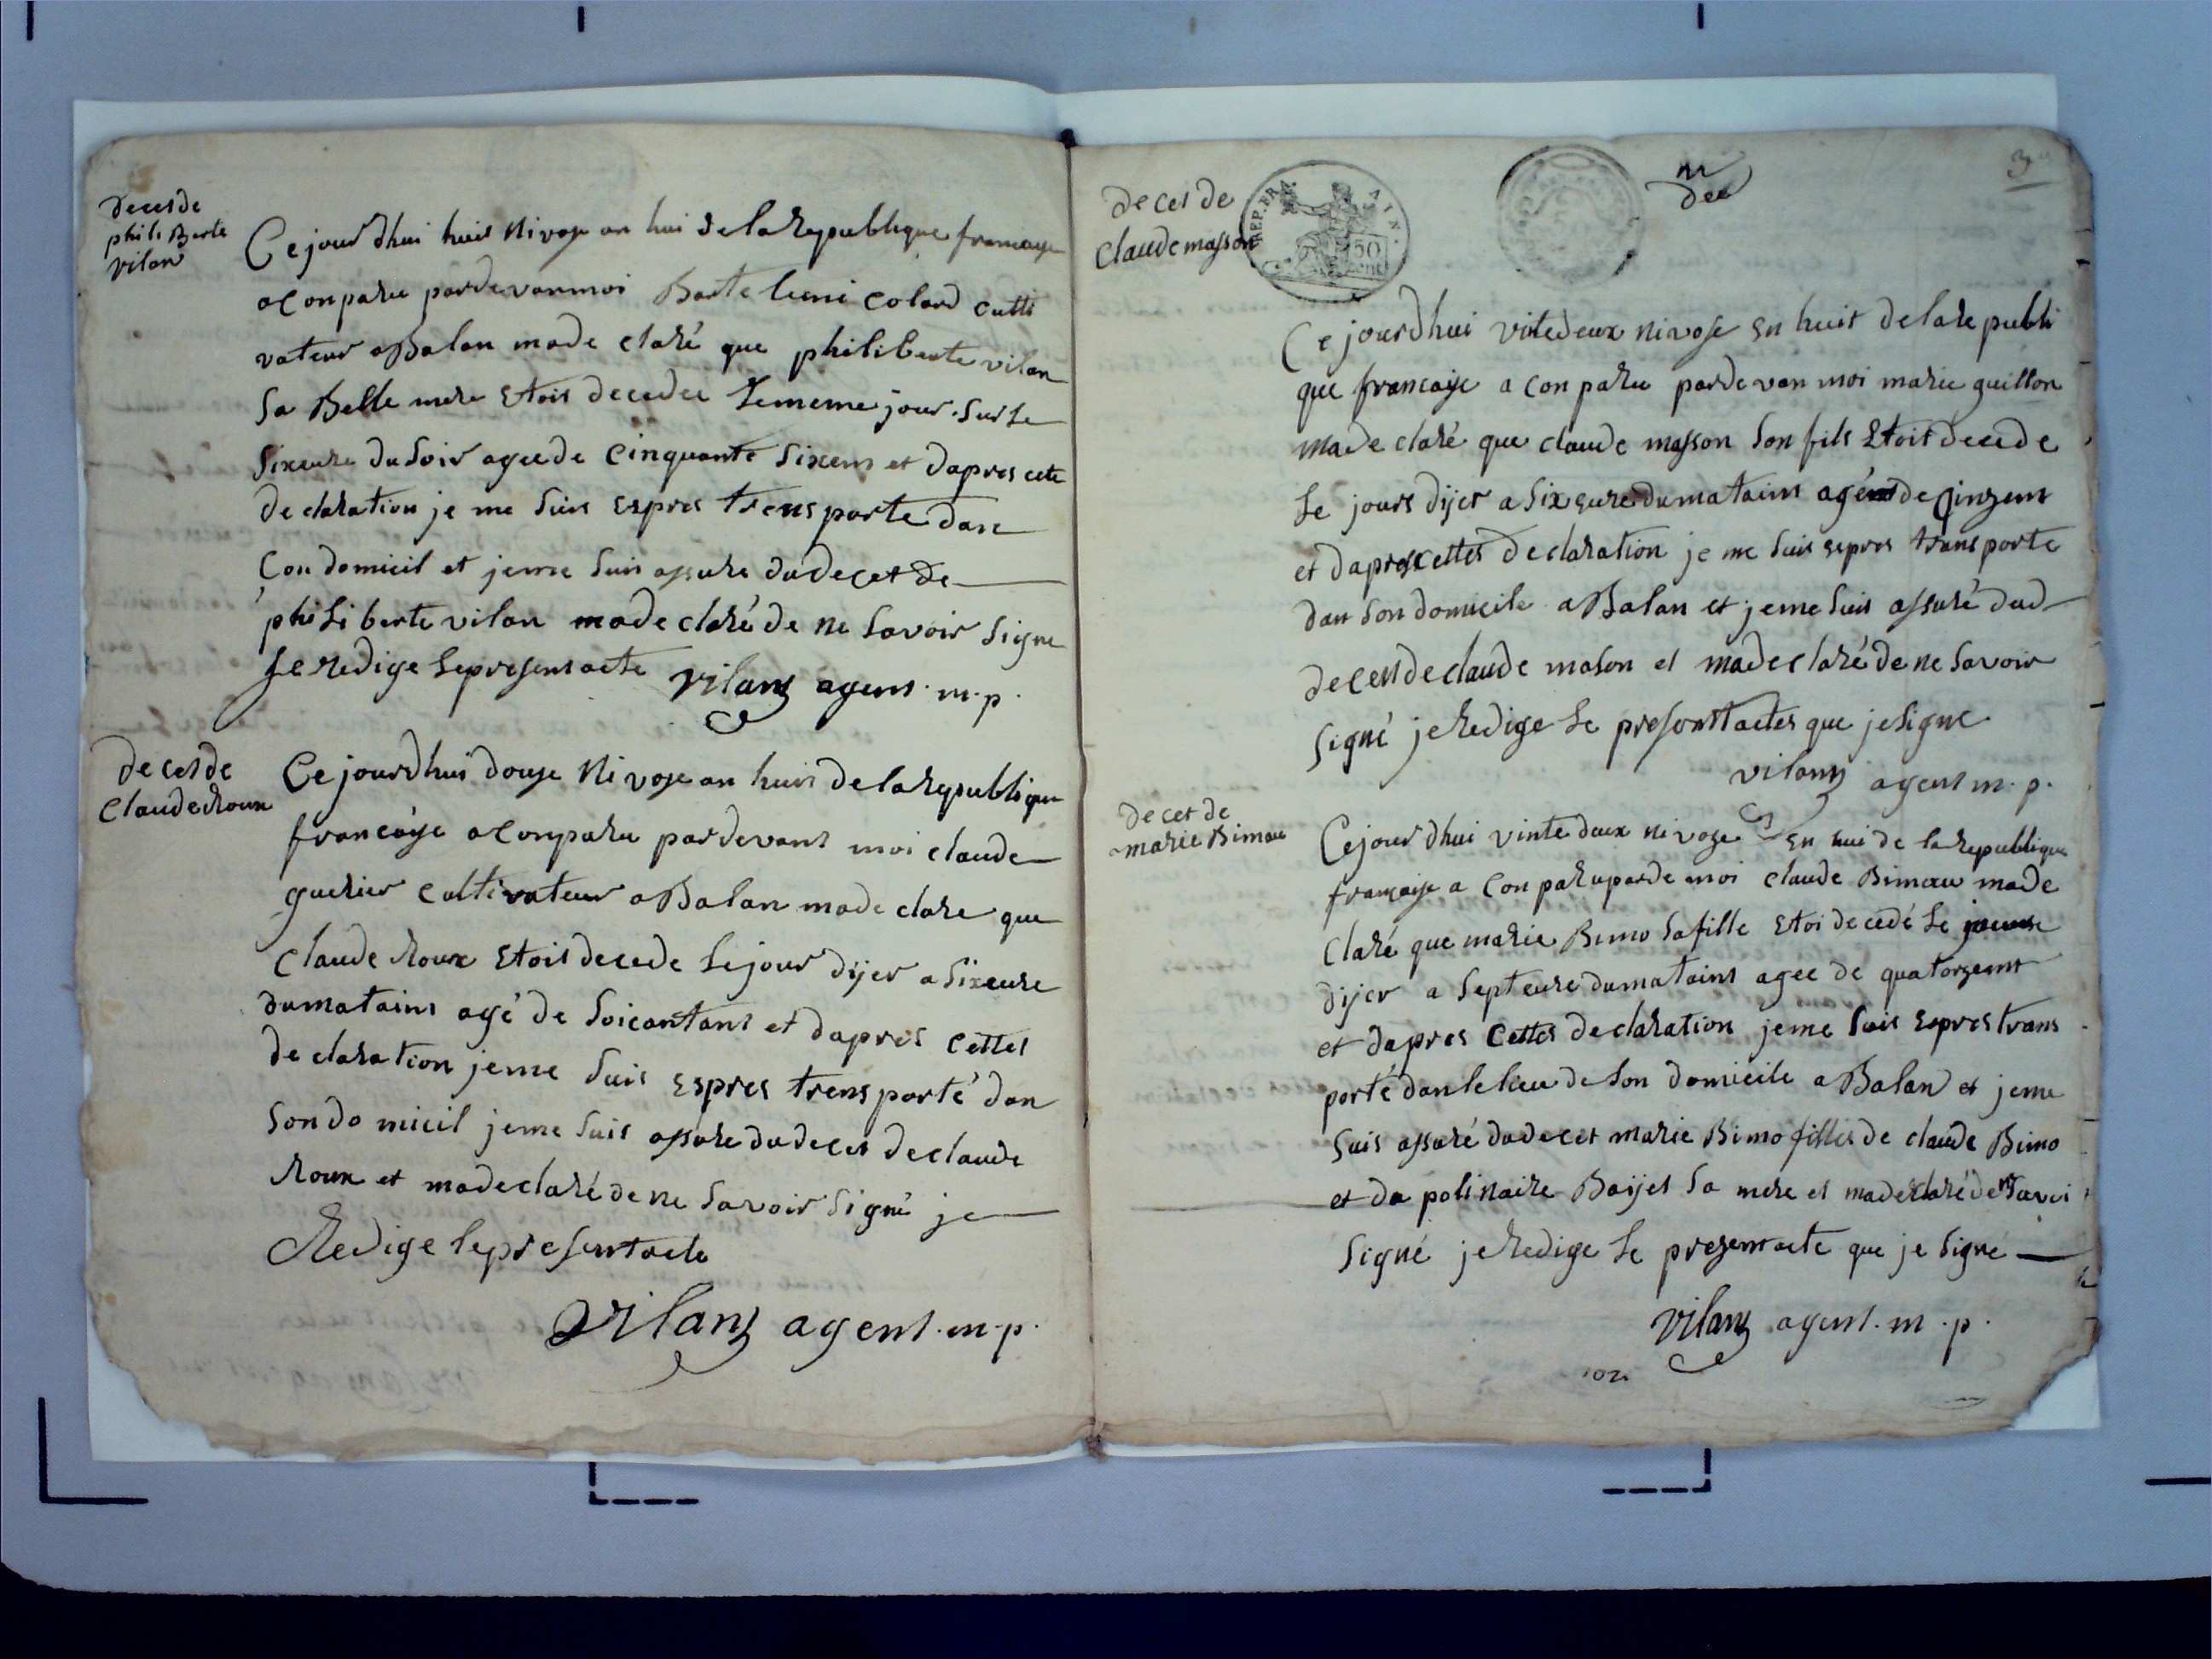 decesde
philiBerte
vilan
Ce jour dhui huis Nivose an hui de la Republique francayse
aConparu pardevanmoi Barteleumi Colard culti
vateur aBalan made claré que philiberte vilan
Sa Belle mere Etois decedee Lememe jour Sur Le
Sixeure du Soir agee de Cinquante Sixens et dapres cete
declaration je me Suis Espres trensporte dan
Con domicil et jeme Suis assure dudecet de
phiLiberte vilan made claré de ne Savoir Signe
Je redige Lepresentacte vilanz agens. m. p.
decesde
ClaudeRoux
Ce jourdhui douse Nivose an huis de la Republique
francáyse aConparu pardevant moi claude
guerier cultivateur aBalan made clare que
Claude Roux Etois decede Le jour dijer a Sixeure
dumatains agé de Soicantans et dapres Cettes
declaration jeme Suis Espres trensporté dan
Son domicil jeme Suis assure dudeces declaude
Roux et madeclaré de ne Savoir Signé je
Redige lepresentacte
Vilanz agent. m. p.
deces de
Claudemasson
REP. FRA. AIN.
50
3
Ce jourdhui vitedeux nivose En huit delare publi
que francaise a Conparu pardevan moi marie guillon
made claré que claude masson Son fils Etoit decede
Le jours dijer a Six Eure dumatains agé de Qinzens
et daprescettes declaration je me Suis Espres transporte
dan Son domicile aBalan et jeme Suis assuré dud
decesdeclaude mason et madeclaré de ne Savoir
Signé je Redige Le presenttactes que jeSigne
vilanz agent m. p.
decet de
marie Bimau
Cejour dhui vinte deux nivoze En hui de la Republique
françayse a Conparuparde moi claude Bimau made
Claré que marie Bimo Safille Etoi decedé Le
dijer a Septeure dumatains agee de quatorzeant
et dapres Cettes declaration jeme Suis Espres trans
porté danlelieu de Son domicile aBalan et jeme
Suis assuré dudecet marie Bimo filles de claude Bimo
et da polinaire Baijet Sa mere et madeclaré de ne Savoi
Signé jeRedige Le prezentacte que je Signé
Vilanz agent. m. p.